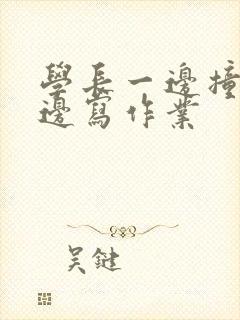 學長一邊撞
邊寫作業
吴鍵